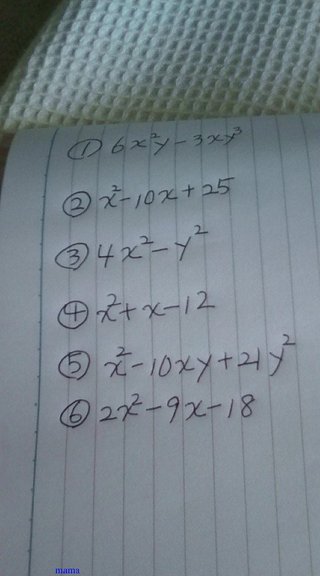 ① 6x²y - 3xy³
② x² - 10x + 25
③ 4x² - y²
④ x² + x - 12
⑤ x² - 10xy + 21y²
⑥ 2x² - 9x - 18
mama